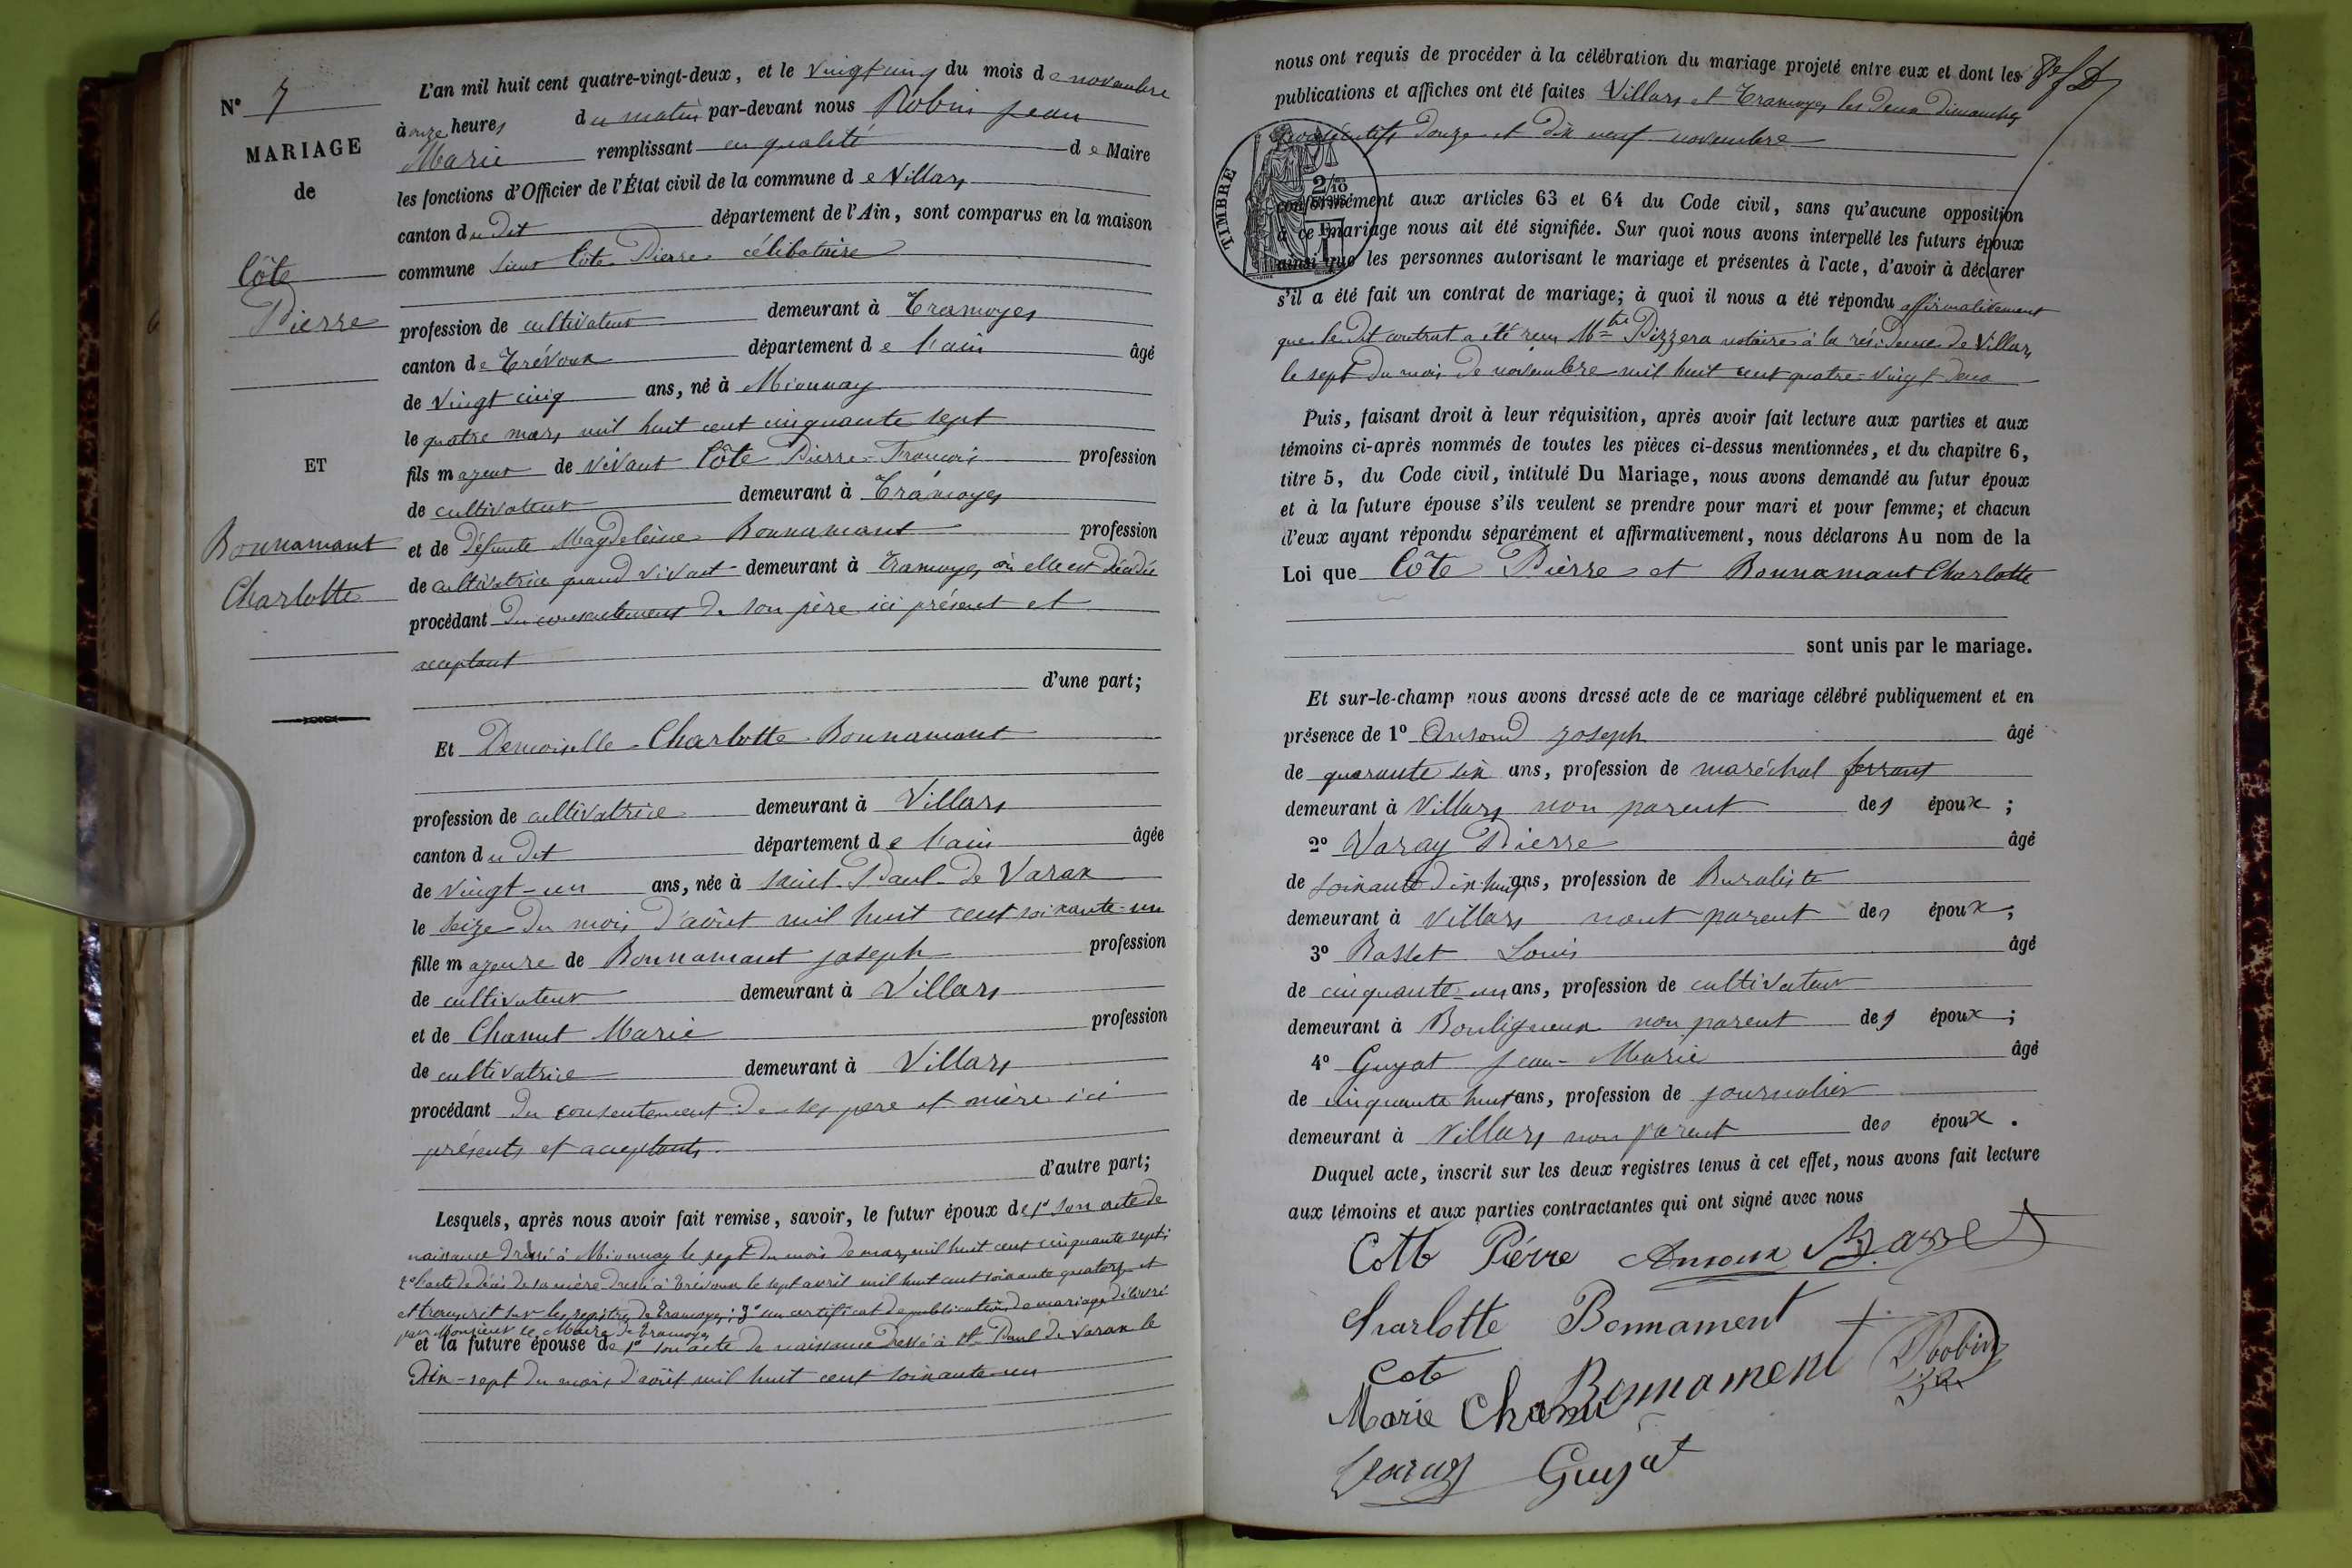 N° 7
MARIAGE
de
Côte
Pierre
ET
Bonnamant
Charlotte
L'an mil huit cent quatre-vingt-deux, et le vingt cinq du mois de novembre
à onze heures du matin par-devant nous Robin Jean
Marie remplissant en qualité de Maire
les fonctions d'Officier de l'État civil de la commune de Villars
canton du dit département de l'Ain, sont comparus en la maison
commune sieur Côte Pierre célibataire
profession de cultivateur demeurant à Tramoyes
canton de Trévoux département de l'ain âgé
de vingt cinq ans, né à Mionnay
le quatre mars mil huit cent cinquante sept
fils majeur de vivant Côte Pierre-François profession
de cultivateur demeurant à Tramoyes
et de Défunte Magdeleine Bonnamant profession
de cultivatrice quand vivait demeurant à Tramoyes où elle est décédée
procédant du consentement de son père ici présent et
acceptant
d'une part;
Et Demoiselle Charlotte Bonnamant
profession de cultivatrice demeurant à Villars
canton du dit département de l'ain âgée
de vingt-un ans, née à saint-Paul-de Varax
le seize du mois d'août mil huit cent soixante-un
fille majeure de Bonnamant joseph profession
de cultivateur demeurant à Villars
et de Chanut Marie profession
de cultivatrice demeurant à Villars
procédant du consentement de ses père et mère ici
présents et acceptants
d'autre part;
Lesquels, après nous avoir fait remise, savoir, le futur époux de 1° son acte de
naissance dressé à Mionnay le sept du mois de mars mil huit cent cinquante sept;
2° l'acte de décès de sa mère dressé à Trévoux le sept avril mil huit cent soixante quatorze et
et transcrit sur les registres de Tramoyes; 3° un certificat de publication de mariage délivré
par Monsieur le Maire de Tramoyes
et la future épouse de 1° son acte de naissance dressé à St Paul de Varax le
dix-sept du mois d'août mil huit cent soixante-un
nous ont requis de procéder à la célébration du mariage projeté entre eux et dont les
publications et affiches ont été faites Villars et Tramoyes les deux dimanches
consécutifs douze et dix neuf novembre
TIMBRE
2/10
conformément aux articles 63 et 64 du Code civil, sans qu'aucune opposition
à ce mariage nous ait été signifiée. Sur quoi nous avons interpellé les futurs époux
ainsi que les personnes autorisant le mariage et présentes à l'acte, d'avoir à déclarer
s'il a été fait un contrat de mariage; à quoi il nous a été répondu affirmativement
que le dit contrat a été reçu Mtre Pizzera notaire à la résidence de Villars
le sept du mois de novembre mil huit cent quatre-vingt deux
Puis, faisant droit à leur réquisition, après avoir fait lecture aux parties et aux
témoins ci-après nommés de toutes les pièces ci-dessus mentionnées, et du chapitre 6,
titre 5, du Code civil, intitulé Du Mariage, nous avons demandé au futur époux
et à la future épouse s'ils veulent se prendre pour mari et pour femme; et chacun
d'eux ayant répondu séparément et affirmativement, nous déclarons Au nom de la
Loi que Côte Pierre et Bonnamant Charlotte
sont unis par le mariage.
Et sur-le-champ nous avons dressé acte de ce mariage célébré publiquement et en
présence de 1° joseph âgé
de quarante six ans, profession de maréchal ferrant
demeurant à Villars non parent des époux;
2° Varay Pierre âgé
de soixante dix huit ans, profession de Buraliste
demeurant à Villars nont parent des époux;
3° Basset Louis âgé
de cinquante-un ans, profession de cultivateur
demeurant à Bouligneux non parent des époux;
4° Guyat Jean-Marie âgé
de cinquante huit ans, profession de journalier
demeurant à Villars non parent des époux.
Duquel acte, inscrit sur les deux registres tenus à cet effet, nous avons fait lecture
aux témoins et aux parties contractantes qui ont signé avec nous
Piérre Basset
Charlotte Bonnament
Cote Bonnament Robin
Marie Chanu
Varay Guyat